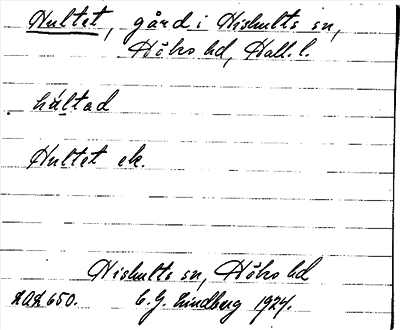 Hultet, gård i Hishults sn,
Höks hd, Hall. l.
hùltad
Hultet ek.
Hishults sn, Höks hd
C. G. Lindberg 1924.